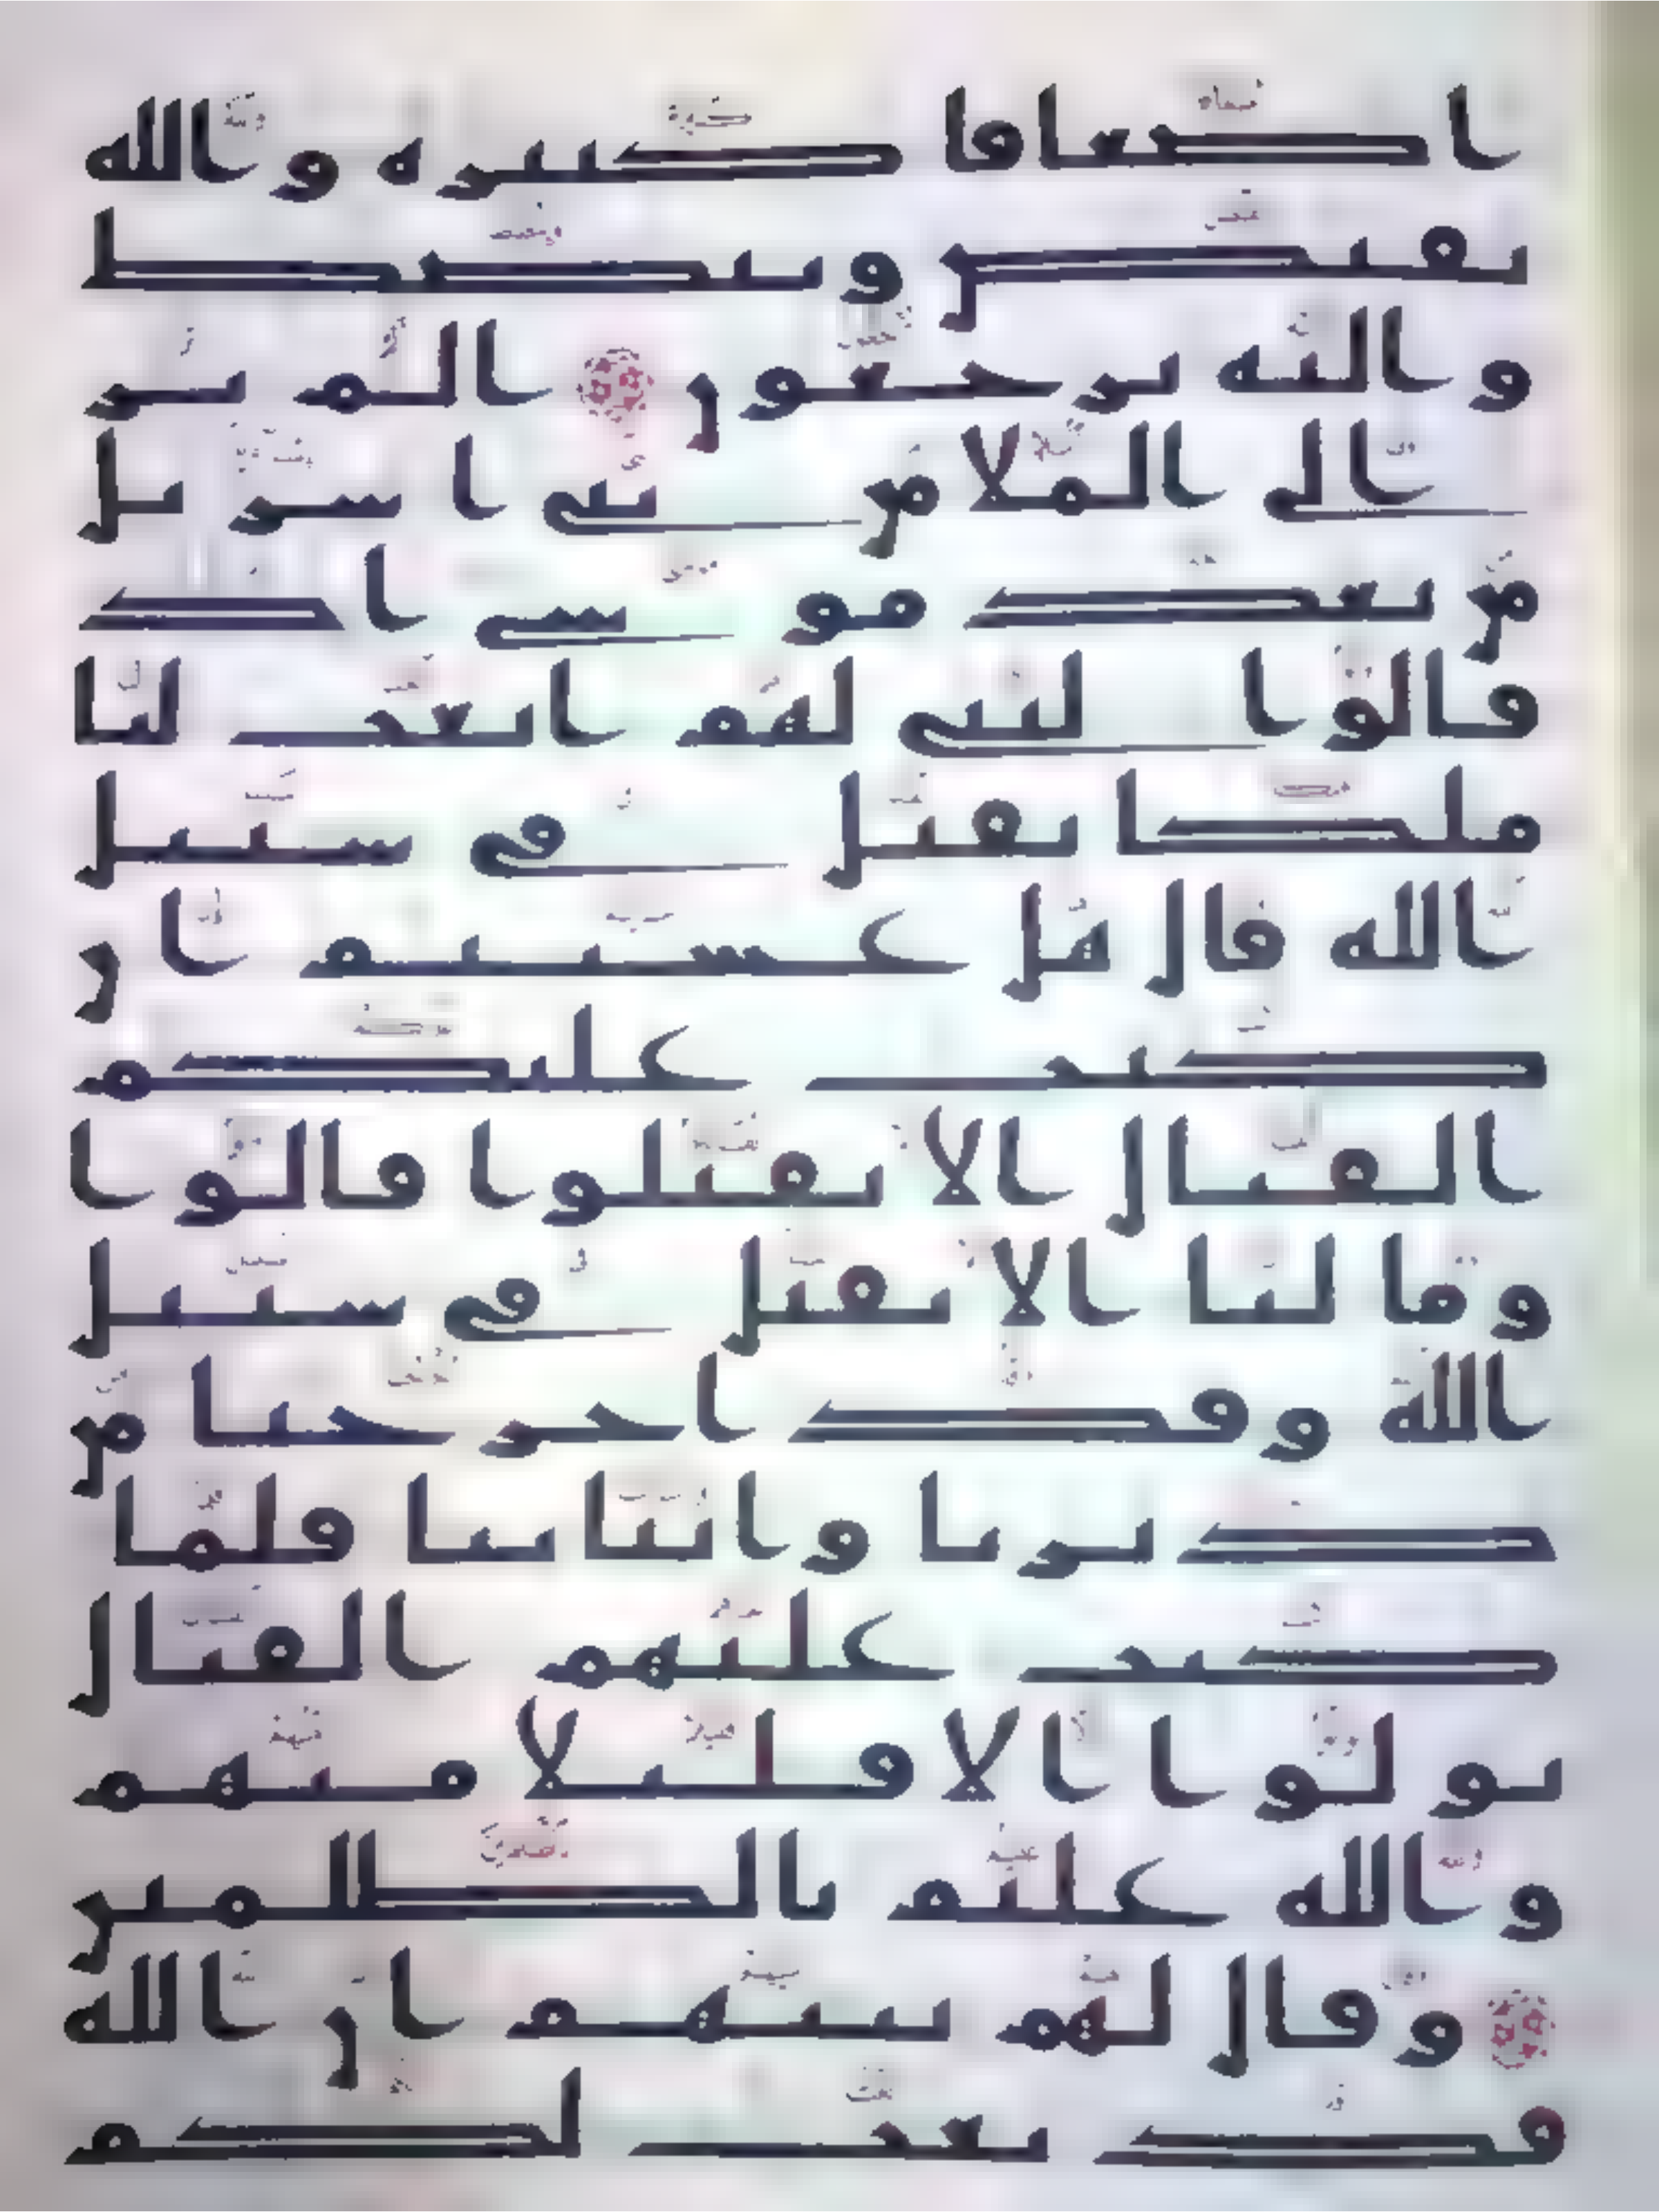 اضعافا كثيره والله
يقبض ويبصط
واليه ترجعون الم تر
الى الملا من بنى اسريل
من بعد موسى اذ
قالوا لنبى لهم ابعث لنا
ملكا نقتل فى سبيل
الله قال هل عسيتم ان
كتب عليكم
القتال الا تقتلوا قالوا
وما لنا الا نقتل فى سبيل
الله وقد اخرجنا من
ديرنا وابناينا فلما
كتب عليهم القتال
تولوا الا قليلا منهم
والله عليم بالظلمين
وقال لهم نبيهم ان الله
قد بعث لكم